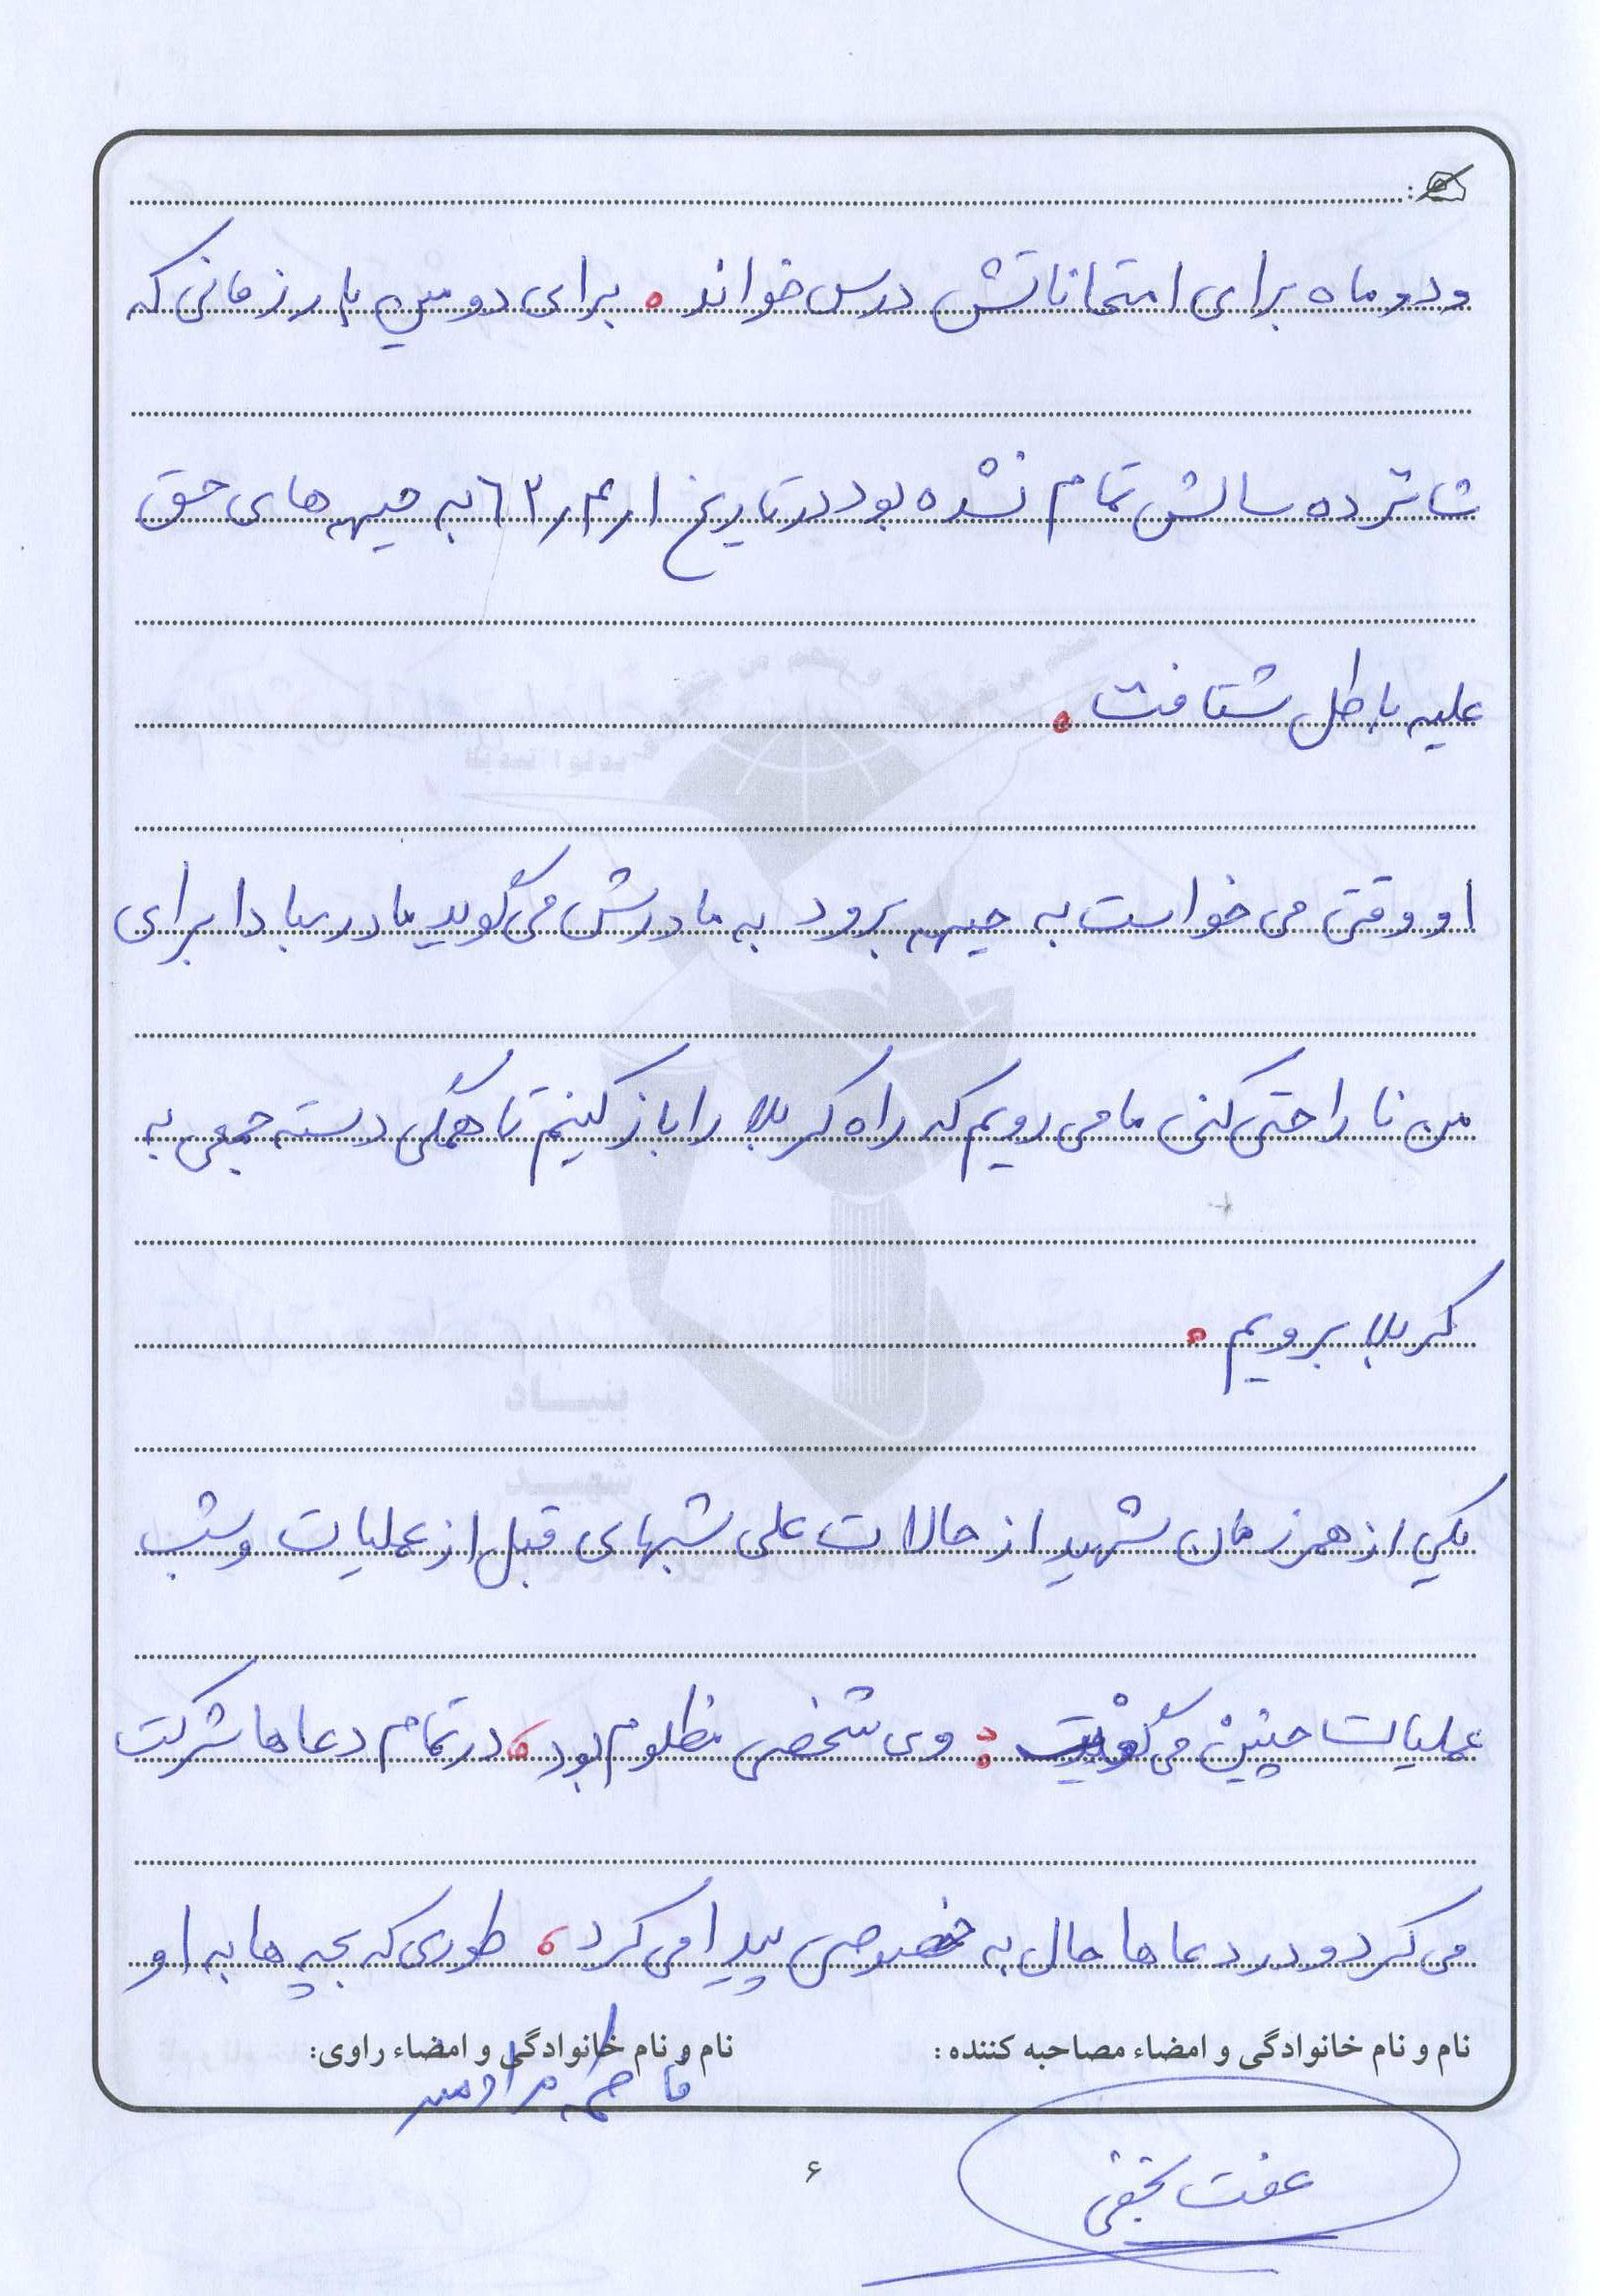 و دو ماه برای امتحاناتش درس خواند. برای دومین بار زمانی که
شانزده سالش تمام نشده بود در تاریخ ۱ر۴ر۶۳ به جبهه های حق
علیه باطل شتافت.
او وقتی می خواست به جبهه برود به مادرش می گوید مادر مبادا برای
من ناراحتی کنی ما می رویم که راه کربلا را باز کنیم تا همگی دسته جمعی به
کربلا برویم.
یکی از همرزمان شهید از حالات علی شبهای قبل از عملیات و شب
عملیات چنین می گفت: وی شخصی مظلوم بود، در تمام دعاها شرکت
می کرد و در دعاها حال به خصوصی پیدا می کرد، طوری که بچه ها به او
نام و نام خانوادگی و امضاء مصاحبه کننده: نام و نام خانوادگی و امضاء راوی:
فاطمه
عفت نجفی
۶